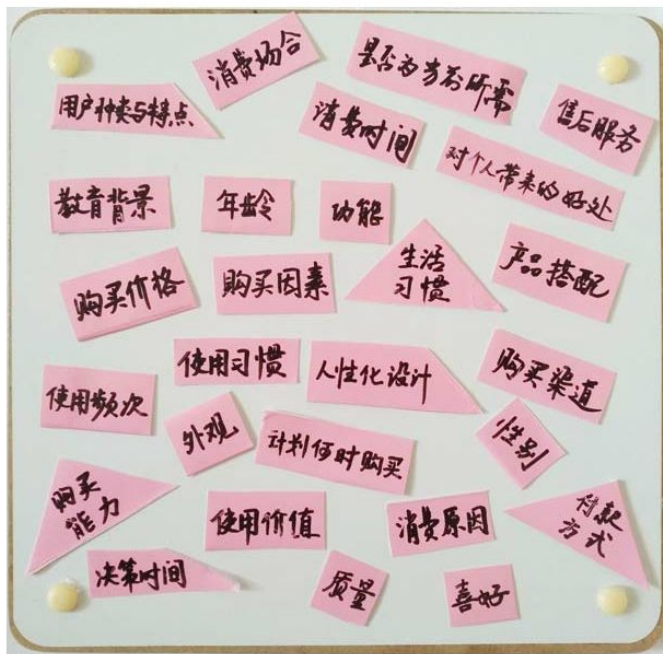 消费场合
是否为当前所需
用户种类与特点
消费时间
售后服务
对个人带来的好处
教育背景
年龄
功能
生活
习惯
产品搭配
购买价格
购买因素
使用习惯
人性化设计
购买渠道
使用频次
外观
计划何时购买
性别
购买
能力
使用价值
消费原因
付款
方式
决策时间
质量
喜好